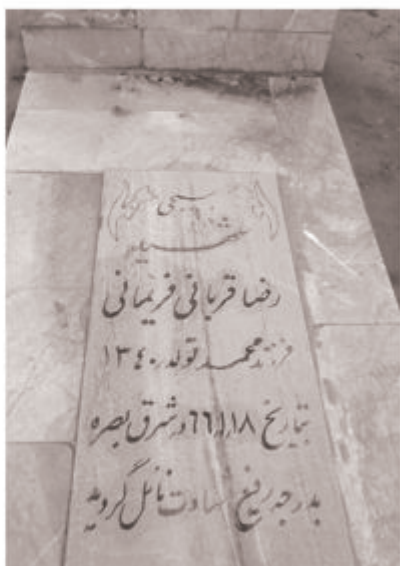 بسیجی
شهید
رضا قربانی فریمانی
فرزند محمد تولد ۱۳٤۰
بتاریخ ٦٦,۱,۱۸ در شرق بصره
بدرجه رفیع شهادت نائل گردید